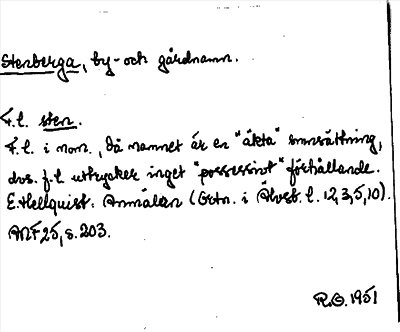 Stenberga, by- och gårdnamn.
F.l. sten.
F.l. i nom., då namnet är en "äkta" smnsättning,
dvs. f.l. uttrycker inget "possessivt" förhållande.
E. Hellquist: Anmälan (Ortn. i Älvsb. l. 12, 3, 5, 10).
ANF 25, s. 203.
R.O. 1951